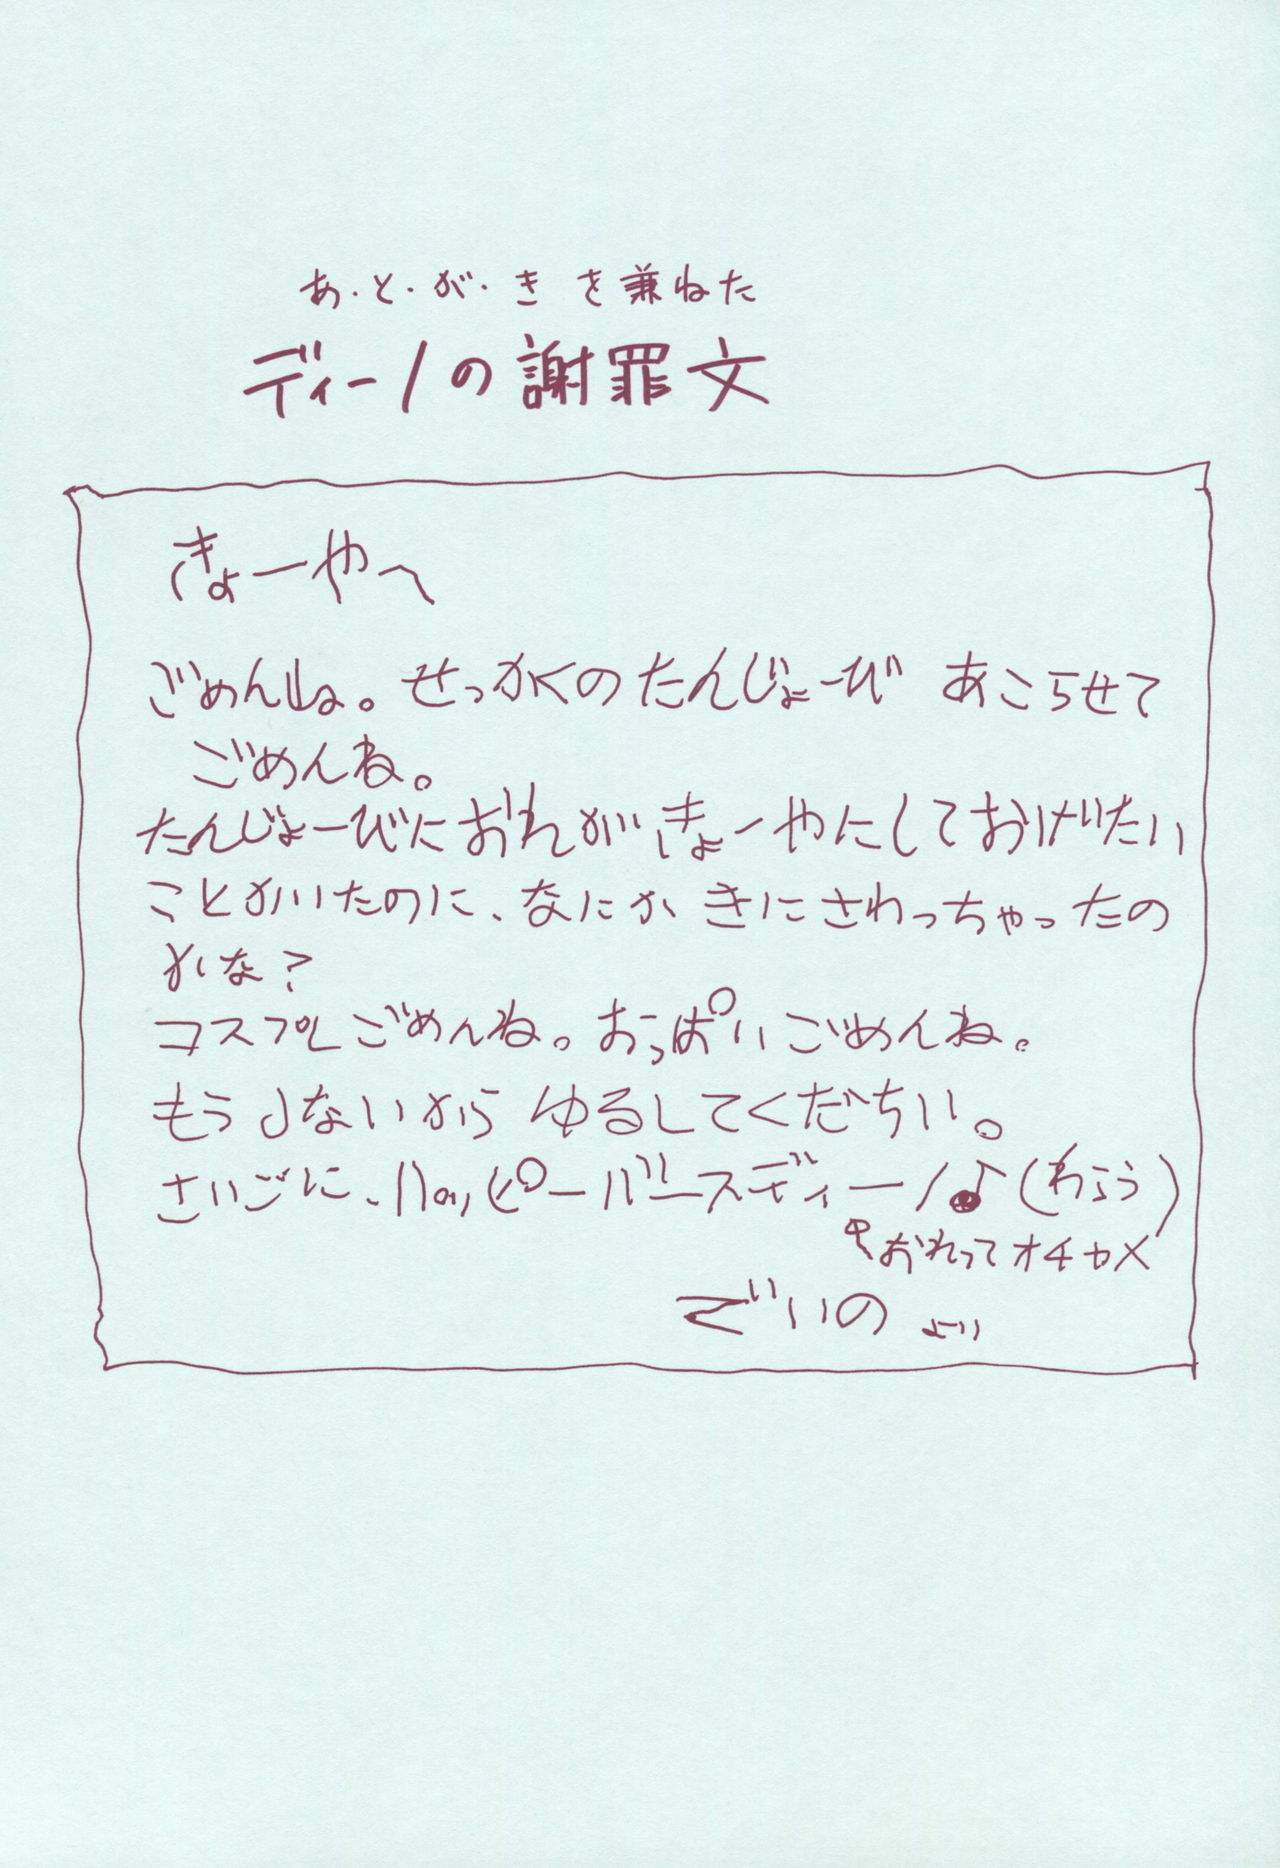 あ・と・が・き を兼ねた
ディーノの謝罪文
きょーやへ
ごめんね。せっかくのたんじょーび あこらせて
ごめんね。
たんじょーびにおれがきょーやにしておげたい
ことかいたのに、なにか きにさわっちゃったの
かな?
コスプレごめんね。おっぱいごめんね。
もうしないから ゆるしてくだちい。
さいごに、ハッピーバースディーノ♪(わらう)
おれってオチャメ
でいいの より